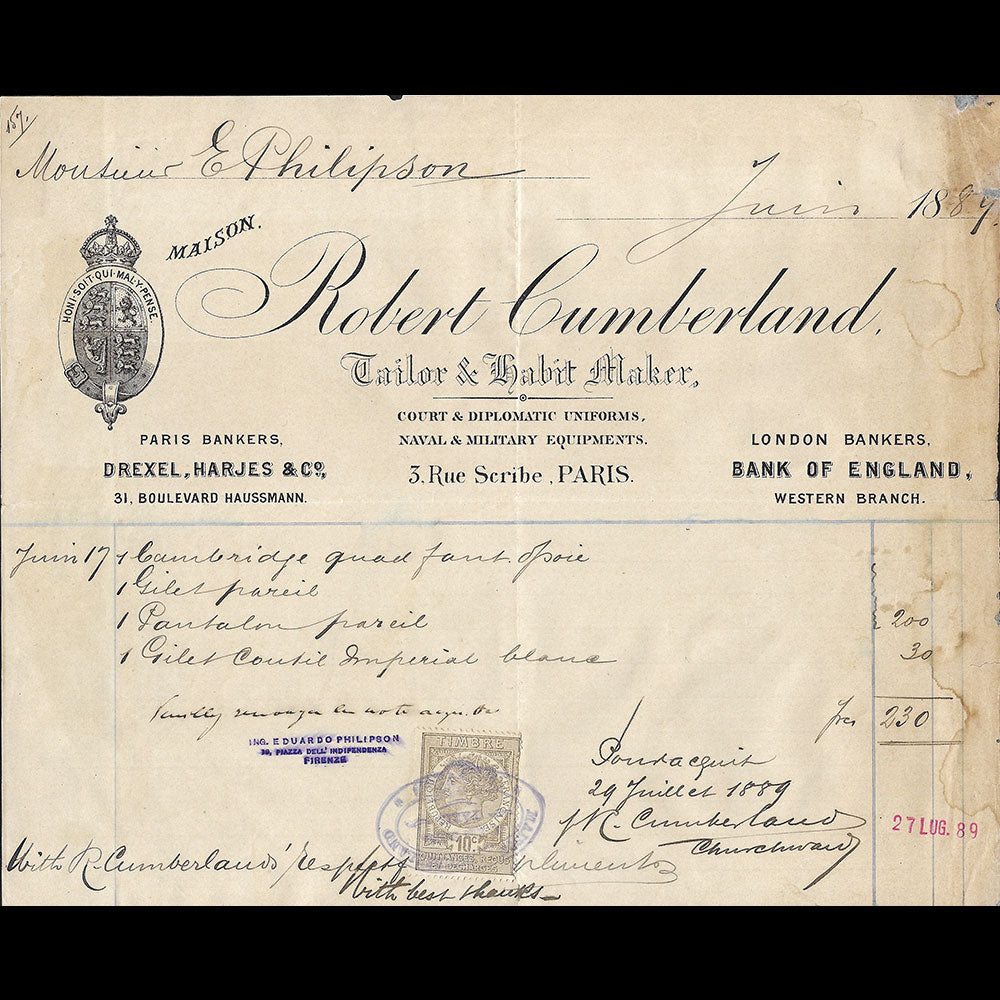 157.
Monsieur E Philipson
Juin 1889
HONI·SOIT·QUI·MAL·Y·PENSE
MAISON.
Robert Cumberland.
Tailor & Habit Maker,
COURT & DIPLOMATIC UNIFORMS,
NAVAL & MILITARY EQUIPMENTS.
3, Rue Scribe, PARIS.
PARIS BANKERS,
DREXEL, HARJES & Co.,
31, BOULEVARD HAUSSMANN.
LONDON BANKERS,
BANK OF ENGLAND,
WESTERN BRANCH.
Juin 17 1 Cambridge quad fant. soie
1 Gilet pareil
1 Pantalon pareil 200
1 Gilet Coutil Imperial blanc 30
frcs 230
ING. EDUARDO PHILIPSON
PIAZZA DELL' INDIPENDENZA
FIRENZE
TIMBRE
10c
Pour acquit
29 Juillet 1889
R. Cumberland
Churchward
27 LUG. 89
With R. Cumberlands' respect
with best thanks